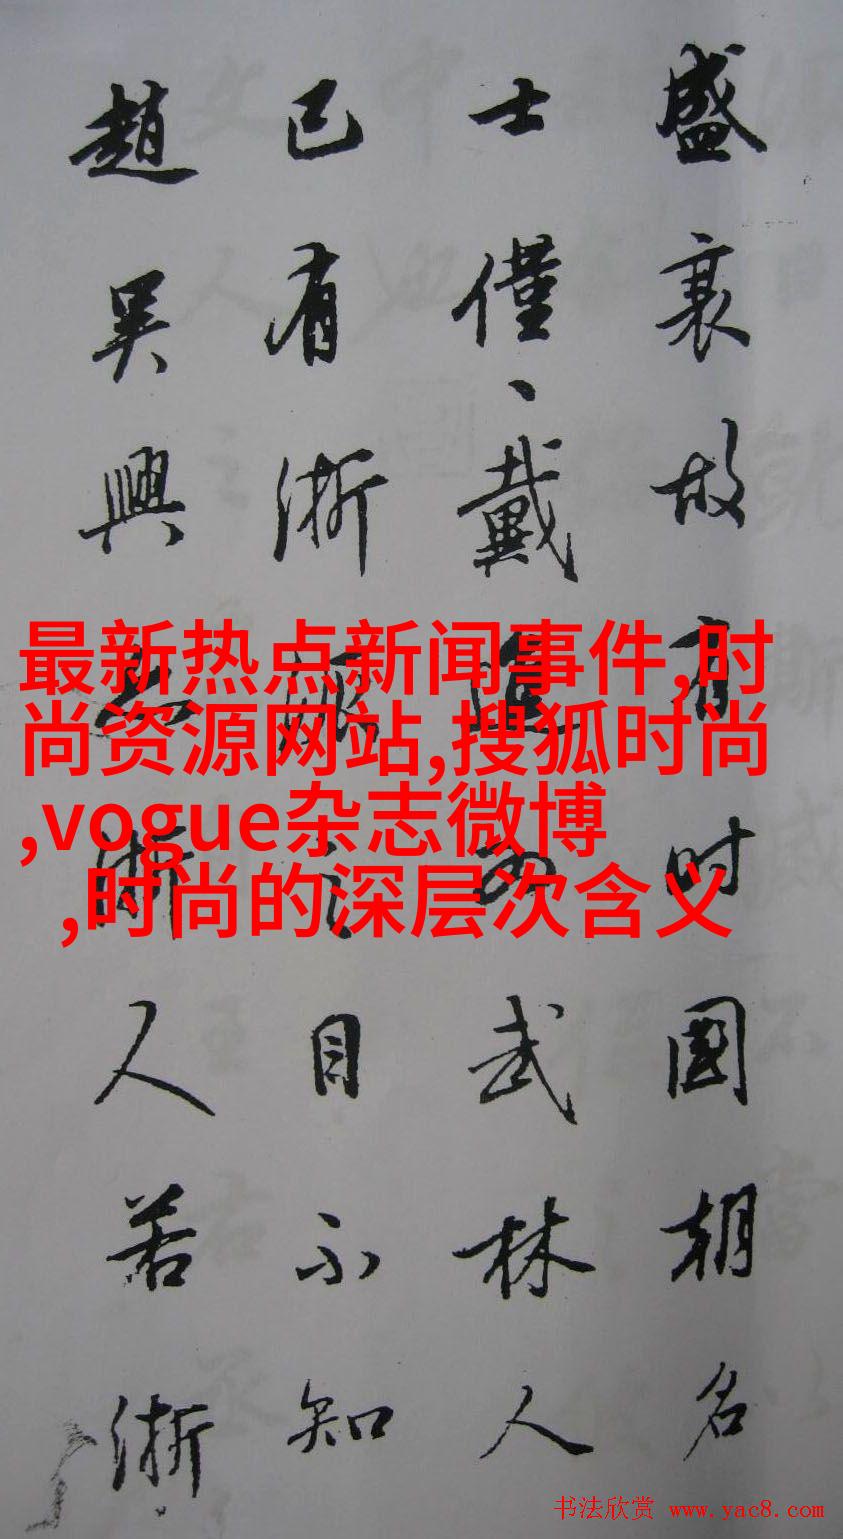 盛衰故有时國朝名
士僅、戴進為武林人
已有浙派之目不知
趙吴興亦浙人若浙
最新热点新闻事件,时
尚资源网站,搜狐时尚
,vogue杂志微博
,时尚的深层次含义
书法欣赏 www.yac8.com